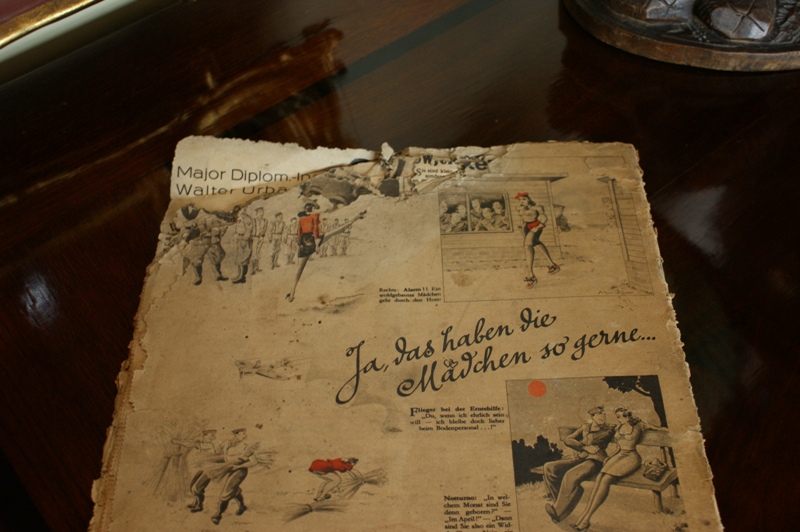 Major Diplom.
Walter
Sie sind
Rechts: Alarm!! Ein
wohlgebautes Mädchen
geht durch den
Ja, das haben die
Mädchen so gerne...
Flieger bei der Erntehilfe:
„Du, wenn ich ehrlich sein
will — ich bleibe doch lieber
beim Bodenpersonal . . .!"
Notturno: „In wel-
chem Monat sind Sie
denn geboren?" —
„Im April!" — „Dann
sind Sie also ein Wid-